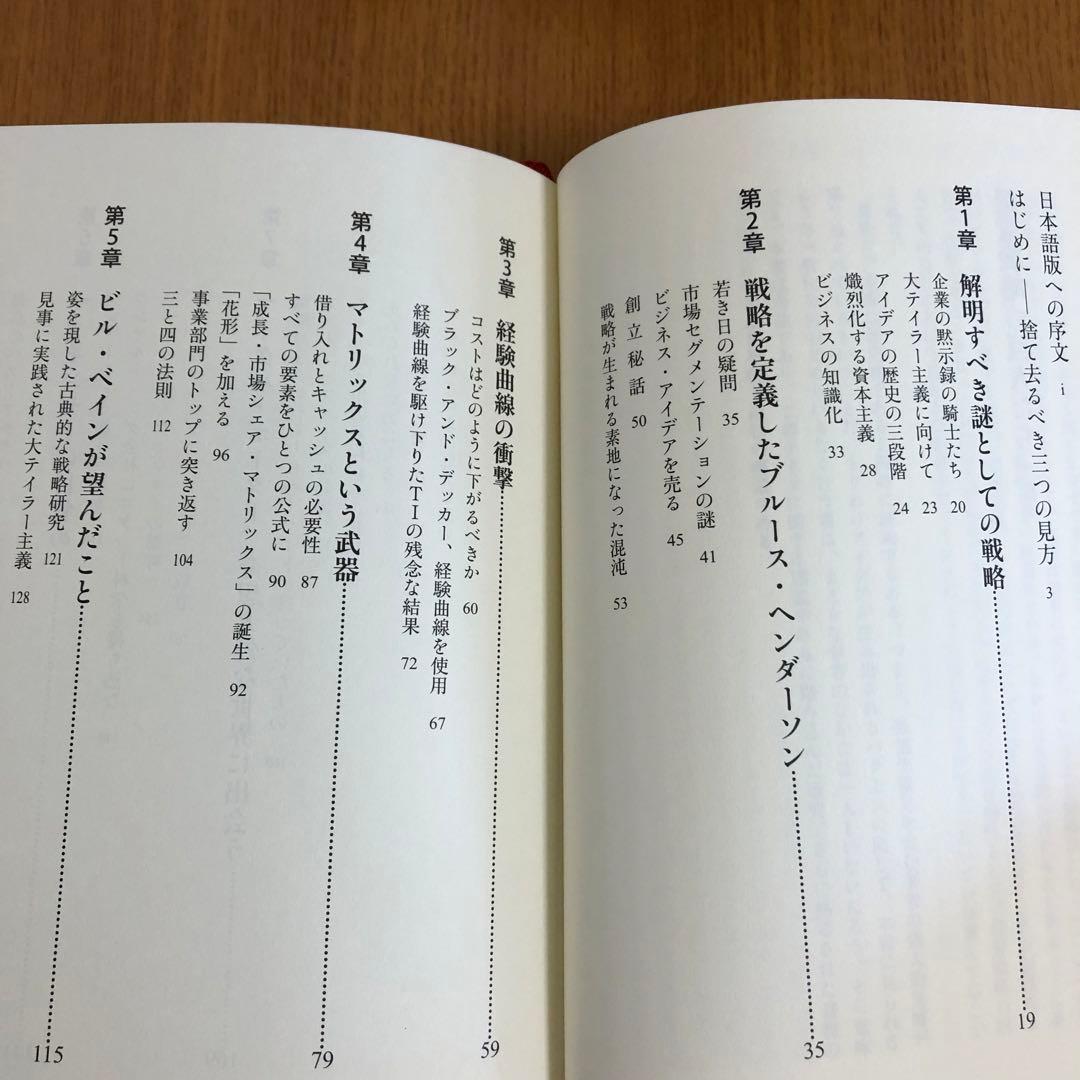 日本語版への序文 i
はじめに——捨て去るべき三つの見方 3
第1章 解明すべき謎としての戦略……19
企業の黙示録の騎士たち 20
大テイラー主義に向けて 23
アイデアの歴史の三段階 24
熾烈化する資本主義 28
ビジネスの知識化 33
第2章 戦略を定義したブルース・ヘンダーソン……35
若き日の疑問 35
市場セグメンテーションの謎 41
ビジネス・アイデアを売る 45
創立秘話 50
戦略が生まれる素地になった混沌 53
第3章 経験曲線の衝撃……59
コストはどのように下がるべきか 60
ブラック・アンド・デッカー、経験曲線を使用 67
経験曲線を駆け下りたTIの残念な結果 72
第4章 マトリックスという武器……79
借り入れとキャッシュの必要性 87
すべての要素をひとつの公式に 90
「成長・市場シェア・マトリックス」の誕生 92
「花形」を加える 96
事業部門のトップに突き返す 104
三と四の法則 112
第5章 ビル・ベインが望んだこと……115
姿を現した古典的な戦略研究 121
見事に実践された大テイラー主義 128